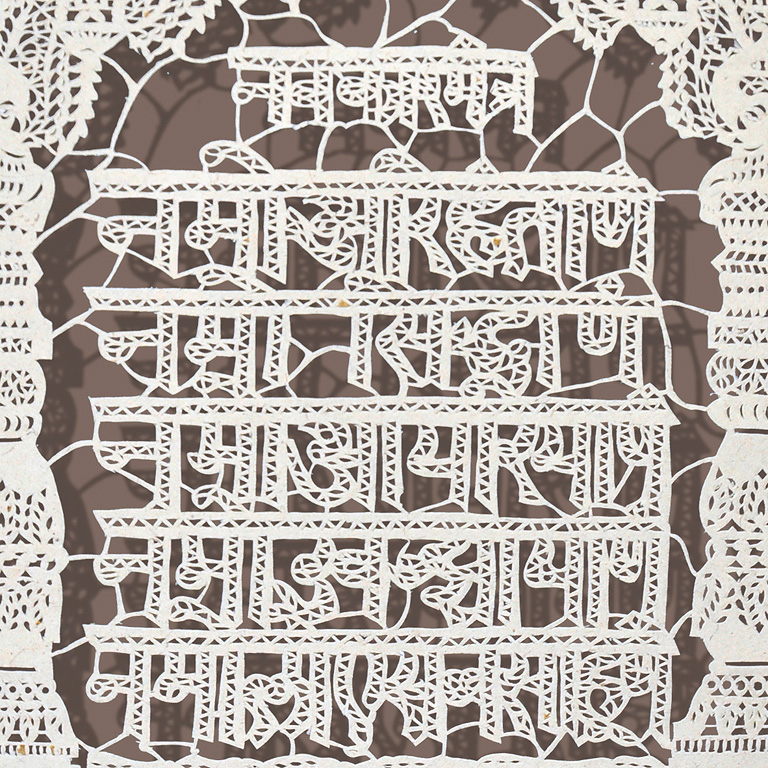 नवकार मंत्र
नमो अरिहंताणं
नमो सिद्धाणं
नमो आयरियाणं
नमो उवज्झायाणं
नमो लोए सव्वसाहू